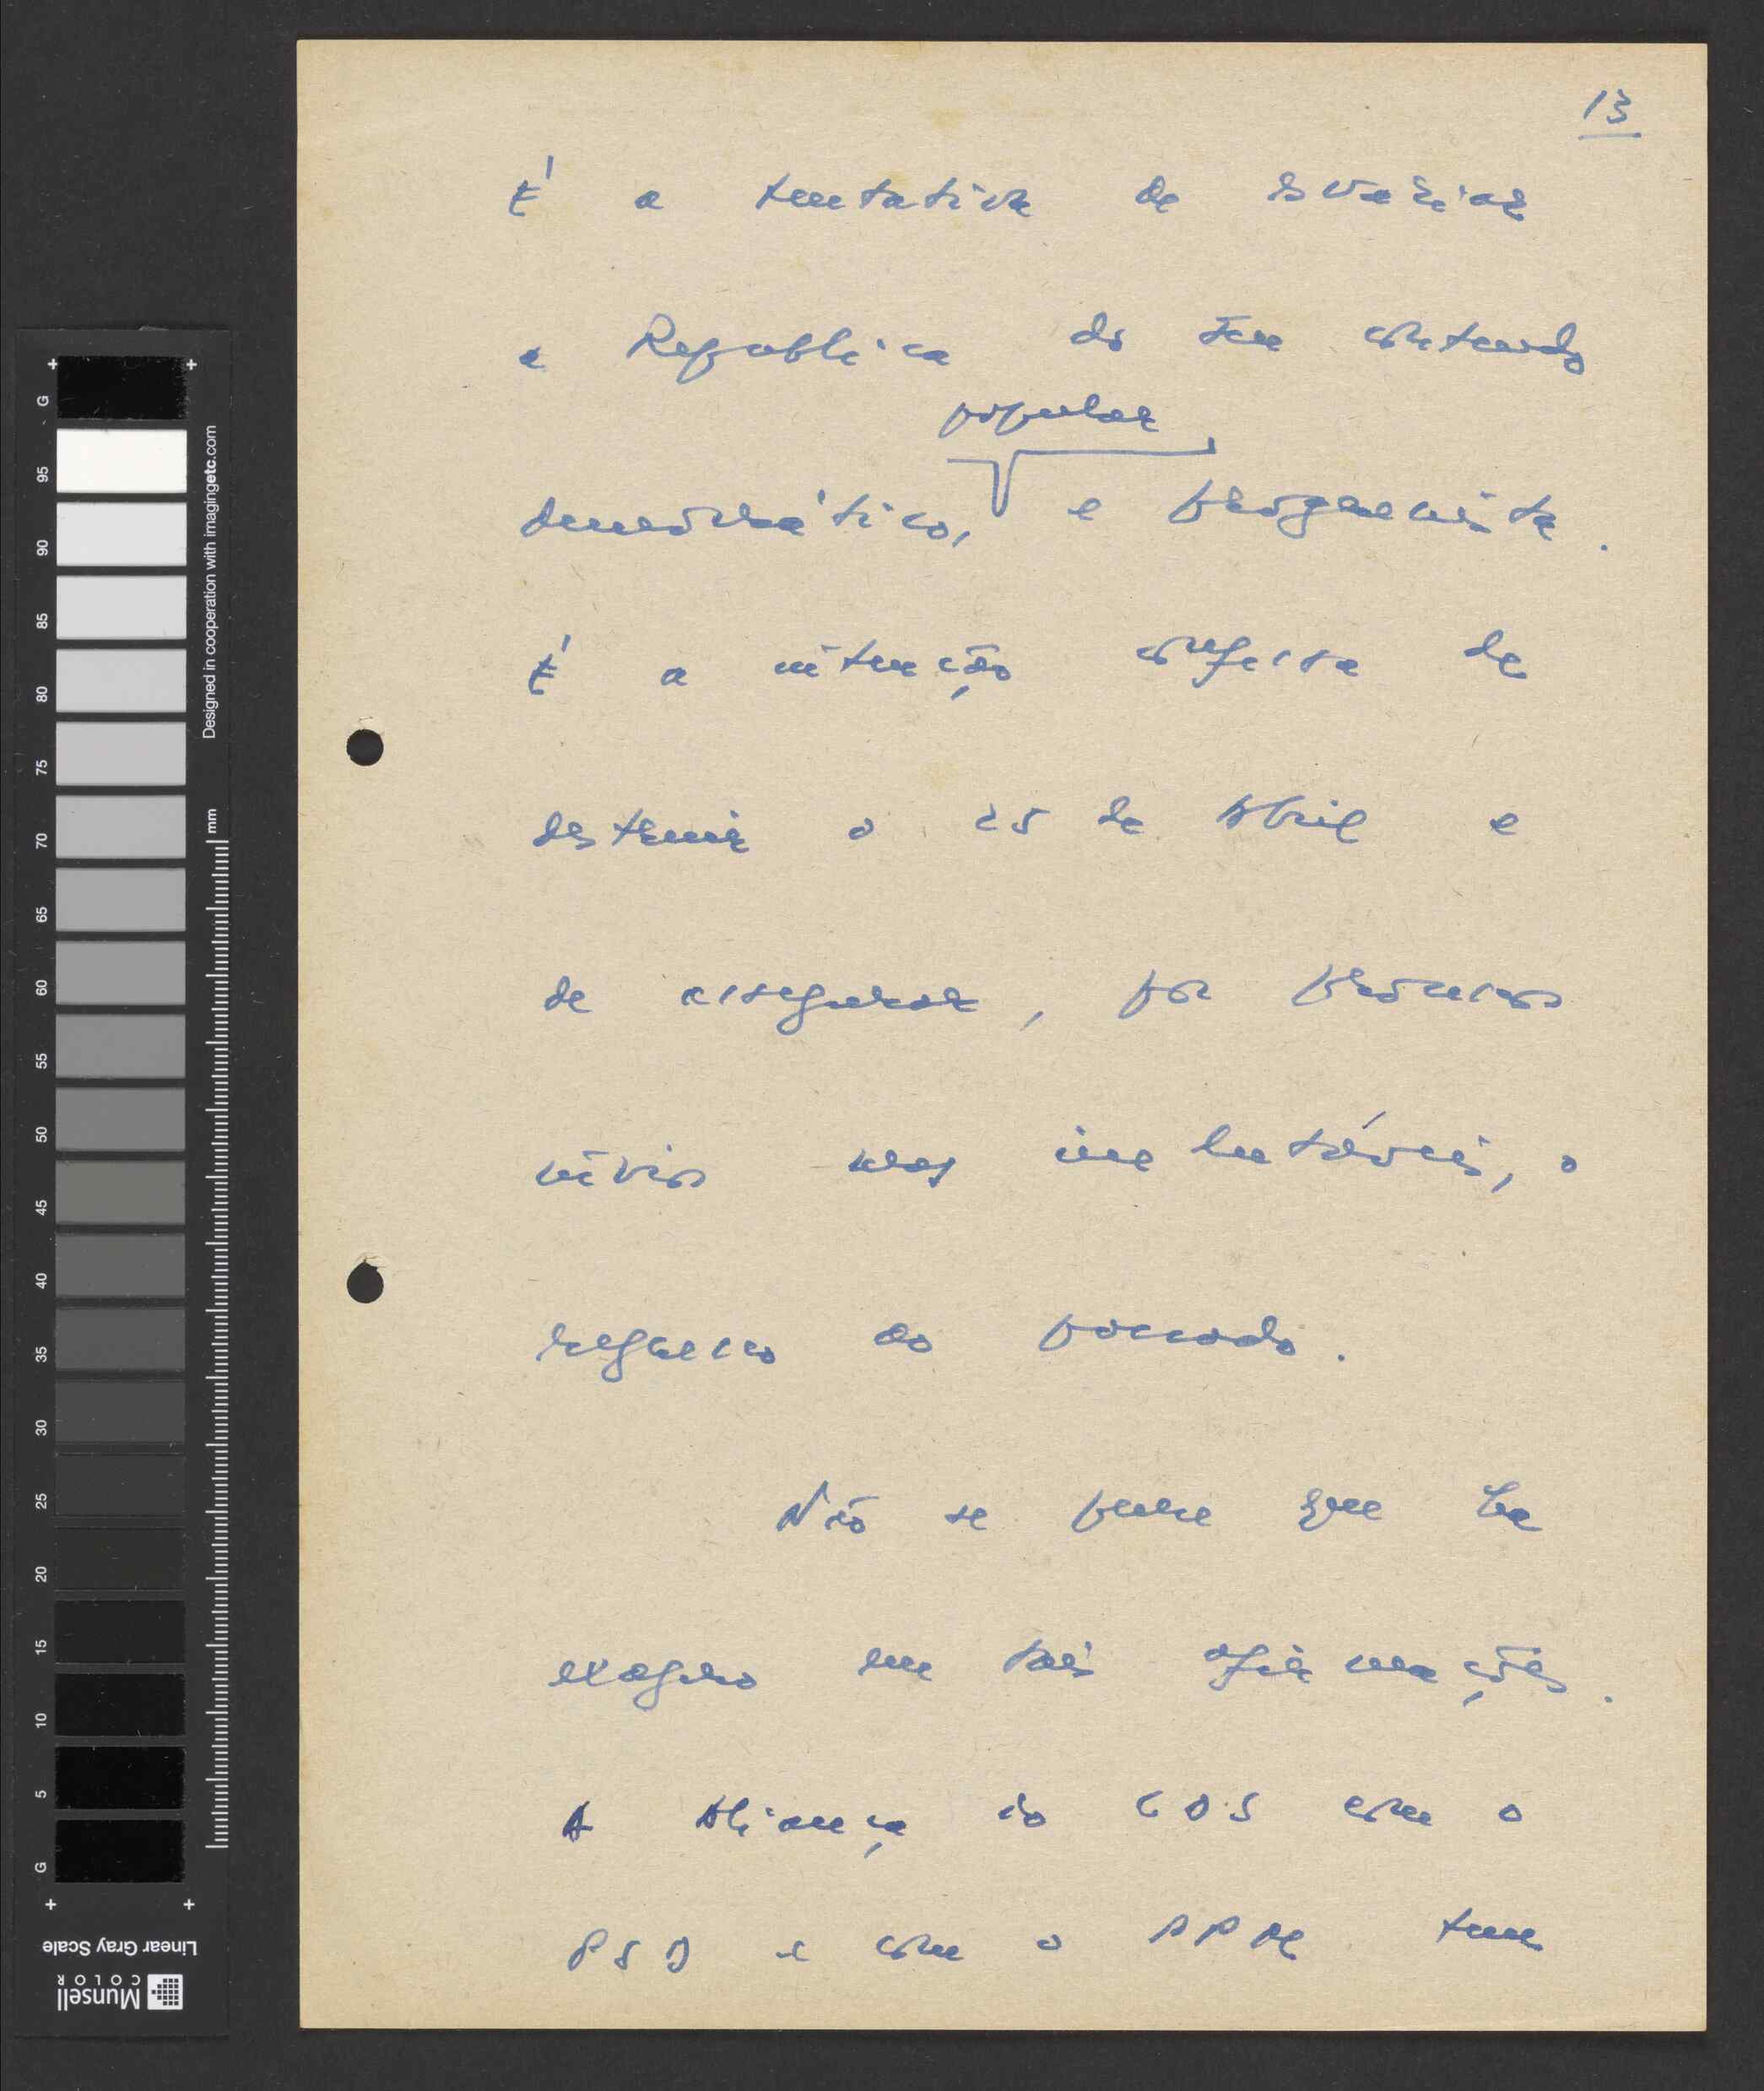 13
É a tentativa de esvaziar
a Republica do seu conteudo
popular
democrático, e progressista.
É a intenção confessa de
destruir o 25 de Abril e
de assegurar, por processos
ínvios mas imbutáveis, o
regresso ao passado.
Não se pense que há
exagero em tais afirmações.
A Aliança do CDS com o
PSD e com o PPM tem
G 95 90 85 80 75 70 65 60 55 50 45 40 35 30 25 20 15 10 5 G
Designed in cooperation with imagingetc.com
mm
Linear Gray Scale
Munsell
COLOR